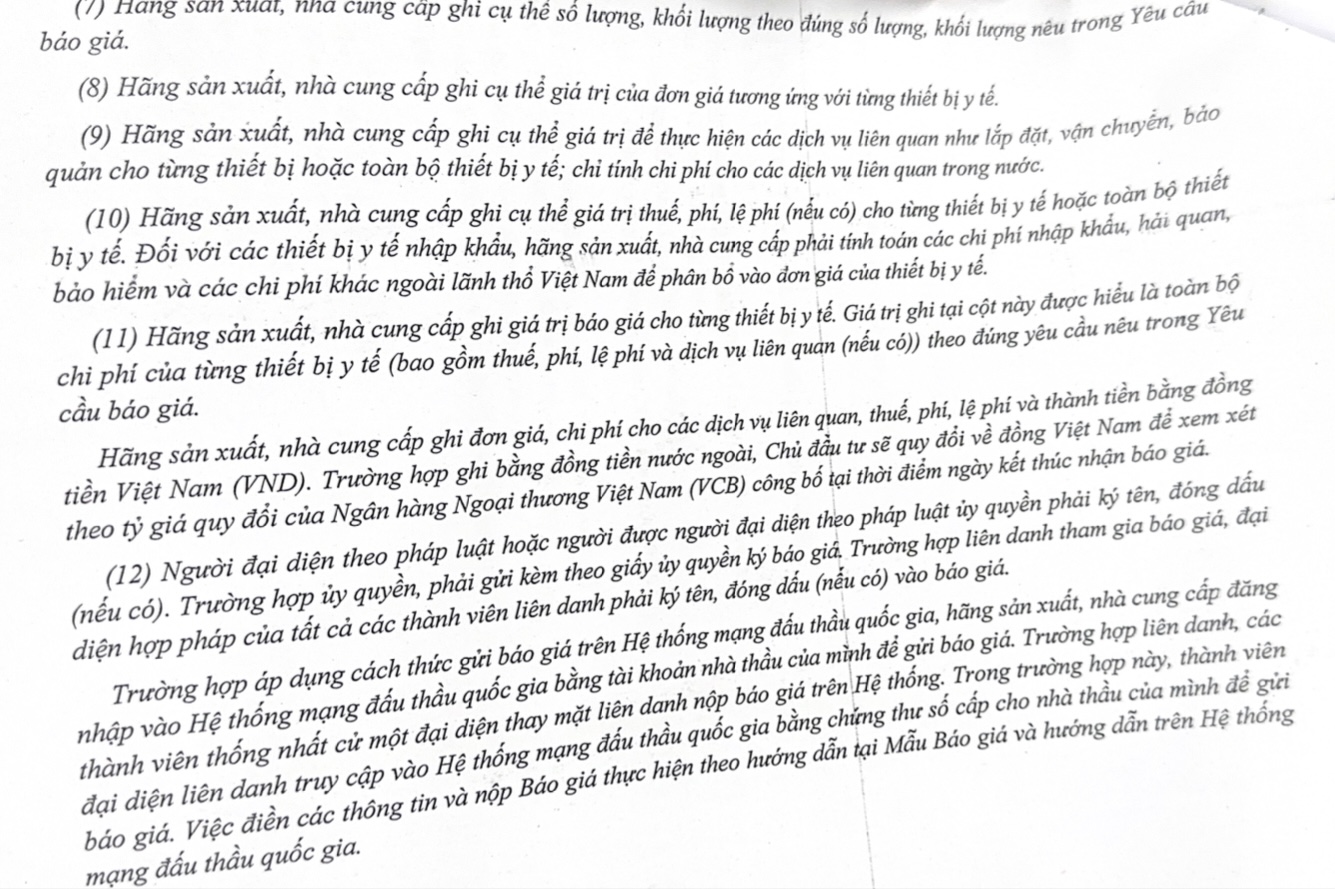 (7) Hãng sản xuất, nhà cung cấp ghi cụ thể số lượng, khối lượng theo đúng số lượng, khối lượng nêu trong Yêu cầu
báo giá.
(8) Hãng sản xuất, nhà cung cấp ghi cụ thể giá trị của đơn giá tương ứng với từng thiết bị y tế.
(9) Hãng sản xuất, nhà cung cấp ghi cụ thể giá trị để thực hiện các dịch vụ liên quan như lắp đặt, vận chuyển, bảo
quản cho từng thiết bị hoặc toàn bộ thiết bị y tế; chỉ tính chi phí cho các dịch vụ liên quan trong nước.
(10) Hãng sản xuất, nhà cung cấp ghi cụ thể giá trị thuế, phí, lệ phí (nếu có) cho từng thiết bị y tế hoặc toàn bộ thiết
bị y tế. Đối với các thiết bị y tế nhập khẩu, hãng sản xuất, nhà cung cấp phải tính toán các chi phí nhập khẩu, hải quan,
bảo hiểm và các chi phí khác ngoài lãnh thổ Việt Nam để phân bổ vào đơn giá của thiết bị y tế.
(11) Hãng sản xuất, nhà cung cấp ghi giá trị báo giá cho từng thiết bị y tế. Giá trị ghi tại cột này được hiểu là toàn bộ
chi phí của từng thiết bị y tế (bao gồm thuế, phí, lệ phí và dịch vụ liên quan (nếu có)) theo đúng yêu cầu nêu trong Yêu
cầu báo giá.
Hãng sản xuất, nhà cung cấp ghi đơn giá, chi phí cho các dịch vụ liên quan, thuế, phí, lệ phí và thành tiền bằng đồng
tiền Việt Nam (VND). Trường hợp ghi bằng đồng tiền nước ngoài, Chủ đầu tư sẽ quy đổi về đồng Việt Nam để xem xét
theo tỷ giá quy đổi của Ngân hàng Ngoại thương Việt Nam (VCB) công bố tại thời điểm ngày kết thúc nhận báo giá.
(12) Người đại diện theo pháp luật hoặc người được người đại diện theo pháp luật ủy quyền phải ký tên, đóng dấu
(nếu có). Trường hợp ủy quyền, phải gửi kèm theo giấy ủy quyền ký báo giá. Trường hợp liên danh tham gia báo giá, đại
diện hợp pháp của tất cả các thành viên liên danh phải ký tên, đóng dấu (nếu có) vào báo giá.
Trường hợp áp dụng cách thức gửi báo giá trên Hệ thống mạng đấu thầu quốc gia, hãng sản xuất, nhà cung cấp đăng
nhập vào Hệ thống mạng đấu thầu quốc gia bằng tài khoản nhà thầu của mình để gửi báo giá. Trường hợp liên danh, các
thành viên thống nhất cử một đại diện thay mặt liên danh nộp báo giá trên Hệ thống. Trong trường hợp này, thành viên
đại diện liên danh truy cập vào Hệ thống mạng đấu thầu quốc gia bằng chứng thư số cấp cho nhà thầu của mình để gửi
báo giá. Việc điền các thông tin và nộp Báo giá thực hiện theo hướng dẫn tại Mẫu Báo giá và hướng dẫn trên Hệ thống
mạng đấu thầu quốc gia.